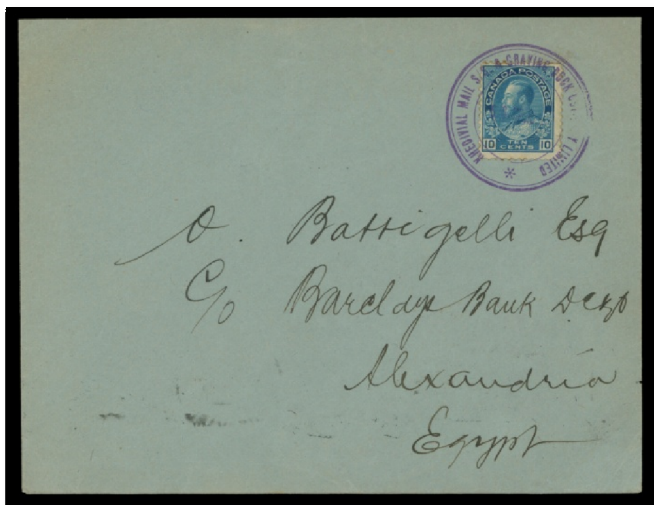 KHEDIVIAL MAIL S. & GRAVING DOCK LIMITED
CANADA POSTAGE
10 TEN CENTS 10
O. Battigelli Esq
C/o Barclays Bank DC&O
Alexandria
Egypt